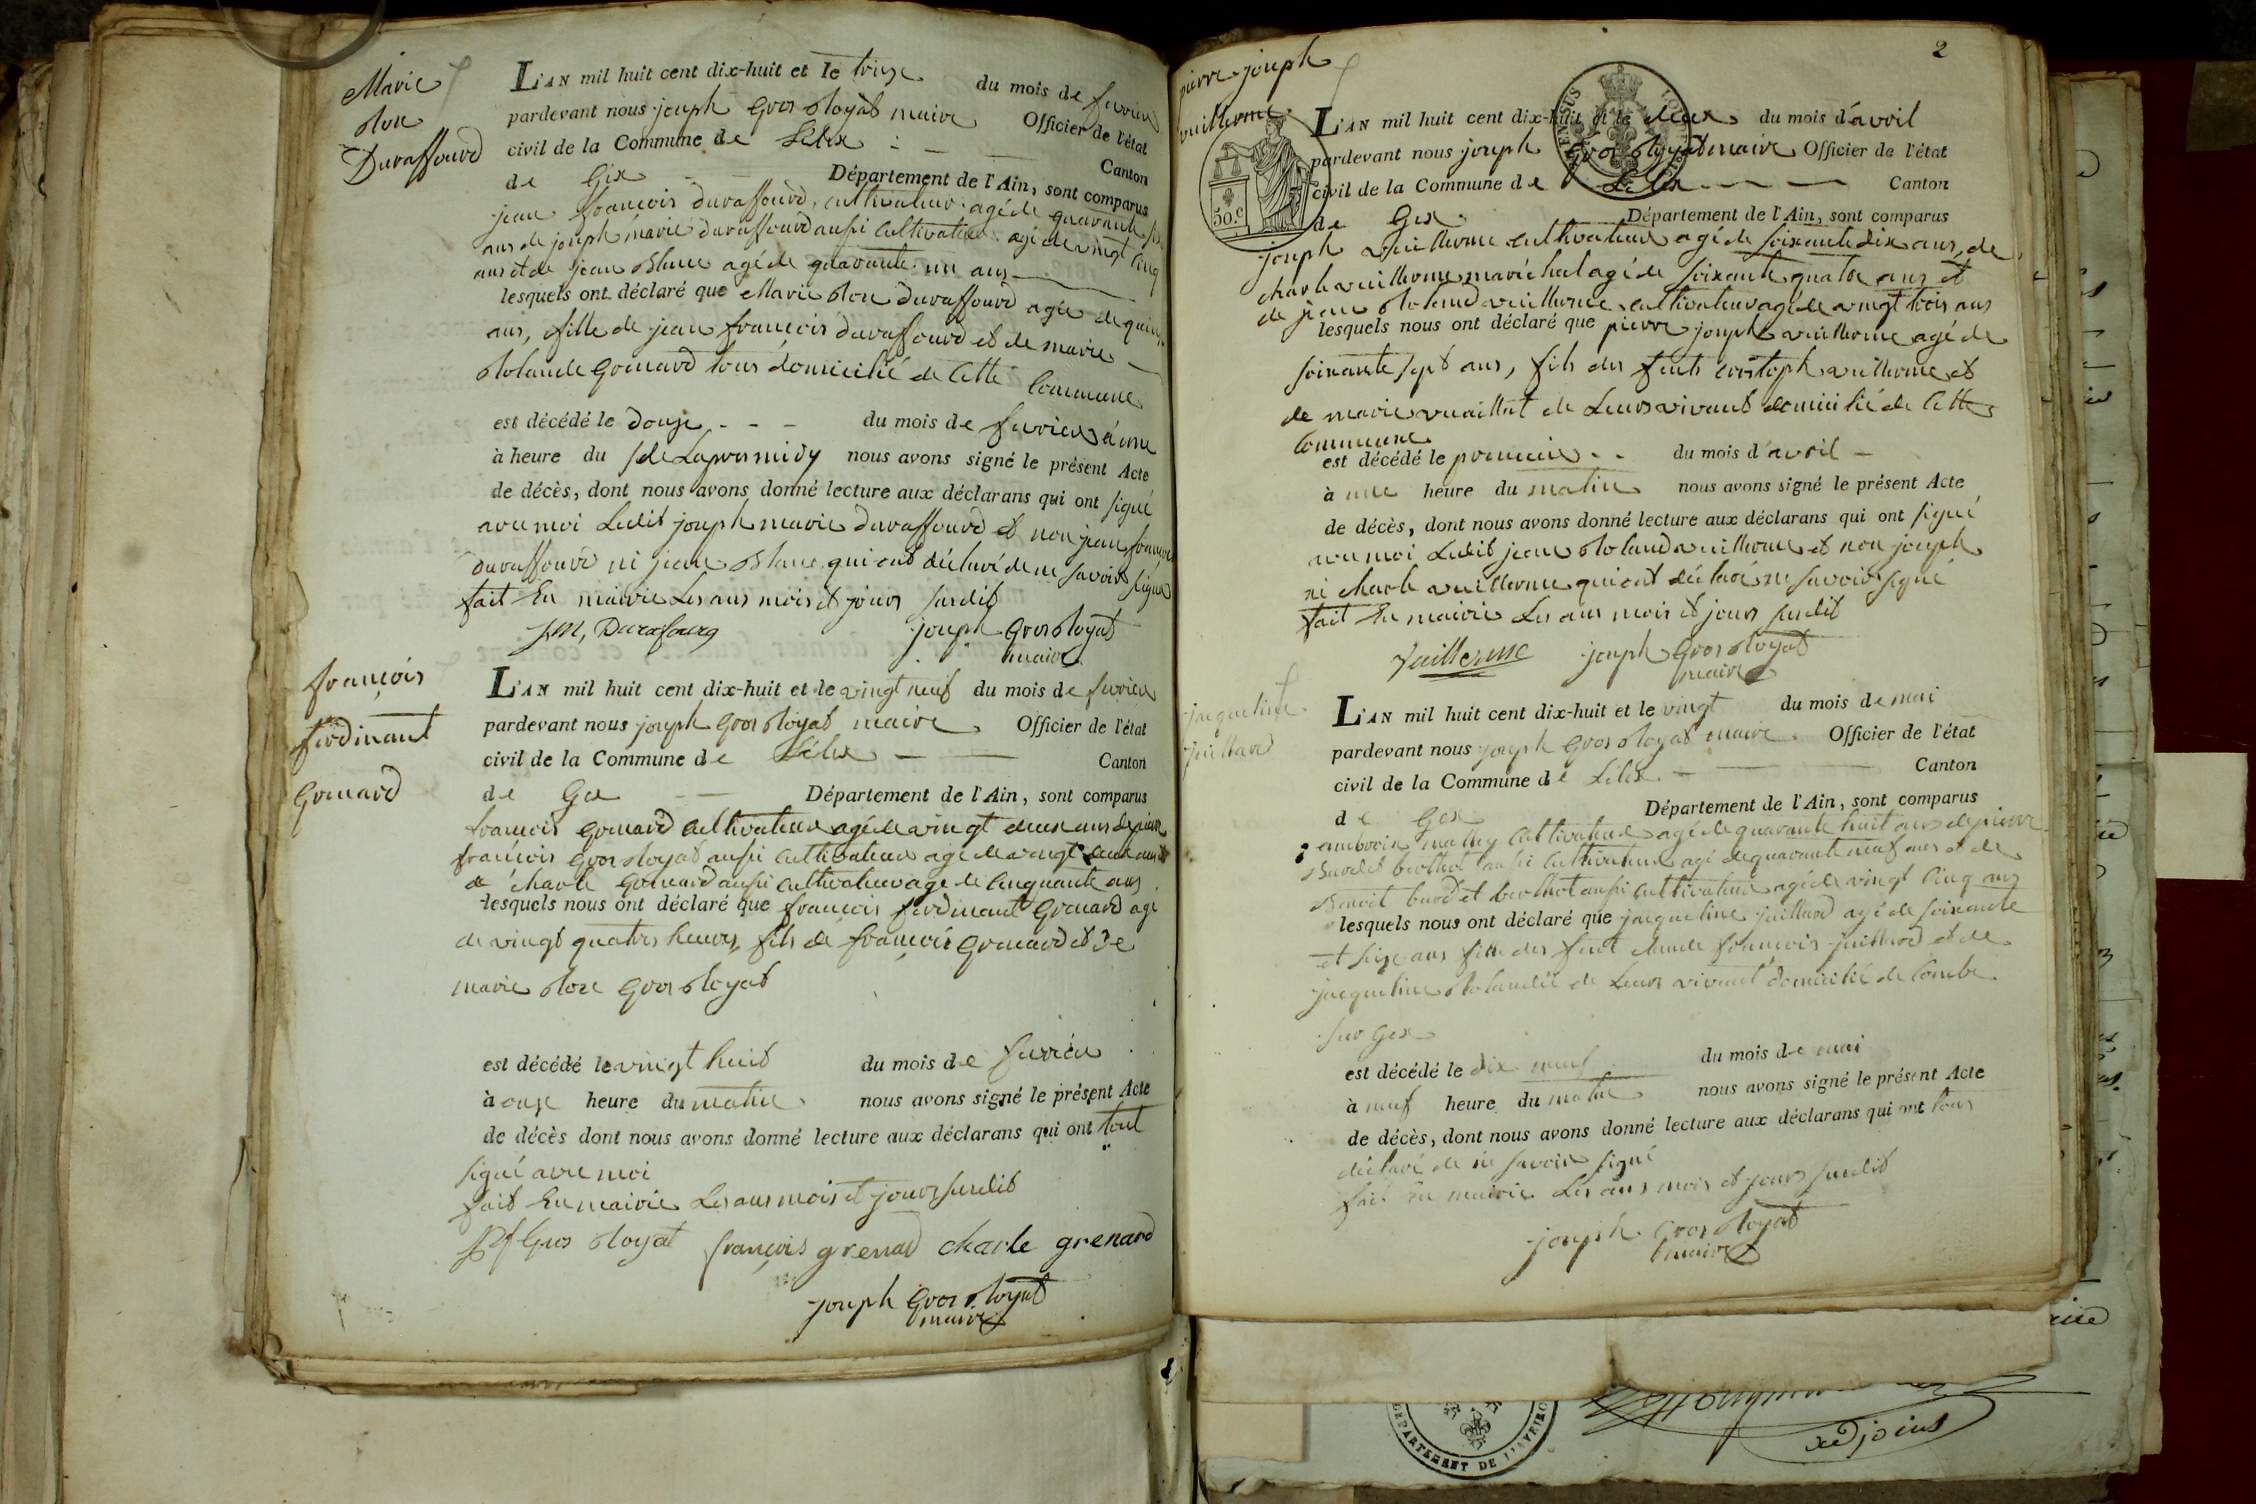 Marie
Rose
Duraffourd
L'AN mil huit cent dix-huit et le treize du mois de fevrier
pardevant nous joseph Gros Royat maire Officier de l'état
civil de la Commune de Lélex Canton
de Gex Département de l'Ain, sont comparus
jean françois duraffourd, cultivateur agé de quarante
ans de joseph marie duraffourd aussi cultivateur agé de vingt cinq
ans et de jean Blanc agé de quarante un ans
lesquels ont déclaré que Marie Rose duraffourd agée de quinze
ans, fille de jean françois duraffourd et de marie
Rolande Grenard tous domicilié de cette Commune
est décédé le douze du mois de fevrier à une
à heure du de Lapresmidy nous avons signé le présent Acte
de décès, dont nous avons donné lecture aux déclarans qui ont signé
avec moi Ledit joseph marie duraffourd et non jean françois
duraffourd ni jean Blanc qui ont déclaré de ne savoir signé
fait En mairie Les ans mois et jours susdit
J M, Durafourg joseph Gros Royat
maire
françois
ferdinant
Grenard
L'AN mil huit cent dix-huit et le vingt neuf du mois de fevrier
pardevant nous joseph Gros Royat maire Officier de l'état
civil de la Commune de Lélex Canton
de Gex Département de l'Ain, sont comparus
françois Grenard cultivateur agé de vingt deux ans de pierre
françois Gros Royat aussi cultivateur agé de vingt deux ans et
de charle Grenard aussi cultivateur agé de cinquante ans
lesquels nous ont déclaré que françois ferdinant Grenard agé
de vingt quatre heures, fils de françois Grenard et de
marie Rose Gros Royat
est décédé le vingt huit du mois de fevrier
à onze heure du matin nous avons signé le présent Acte
de décès dont nous avons donné lecture aux déclarans qui ont tout
signé avec moi
fait En mairie Les ans mois et jours susdit
Pf Gros Royat françois grenad charle grenard
joseph Gros Royat
maire
2
pierre joseph
vuillerme
50.c
L'AN mil huit cent dix-huit et le deux du mois d'avril
pardevant nous joseph Gros Royat maire Officier de l'état
civil de la Commune de Lélex Canton
de Gex Département de l'Ain, sont comparus
joseph vuillerme cultivateur agé de soixante dix ans, de
charle vuillerme maréchal agé de soixante quatre ans et
de jean Roland vuillerme cultivateur agé de vingt trois ans
lesquels nous ont déclaré que pierre joseph vuillerme agé de
soixante sept ans, fils des feuts cristoph vuillerme et
de marie vuaillat de Leurs vivant domicilié de Cette
Commune
est décédé le premier du mois d'avril
à une heure du matin nous avons signé le présent Acte
de décès, dont nous avons donné lecture aux déclarans qui ont signé
avec moi Ledit jean Roland vuillerme et non joseph
ni charle vuillerme qui ont déclaré ne savoir signé
fait En mairie Les ans mois et jours susdit
Vuillerme joseph Gros Royat
maire
jaqueline
juillard
L'AN mil huit cent dix-huit et le vingt du mois de mai
pardevant nous joseph Gros Royat maire Officier de l'état
civil de la Commune de Lélex Canton
de Gex Département de l'Ain, sont comparus
emboois mathey cultivateur agé de quarante huit ans de pierre
Burdet berthot aussi cultivateur agé de quarante neuf ans et de
Benoit burdet berthot aussi cultivateur agé de vingt cinq ans
lesquels nous ont déclaré que jacqueline juillard agé de soixante
et seize ans fille des feut claude françois juillard et de
jacqueline Rolandée de Leurs vivant domicilié de Combe
sur Gex
est décédé le dix neuf du mois de mai
à neuf heure du matin nous avons signé le présent Acte
de décès, dont nous avons donné lecture aux déclarans qui ont tous
déclaré de ne savoir signé
fait En mairie Les ans mois et jours susdit
joseph Gros Royat
maire
DEPARTEMENT DE L'AVEYRON